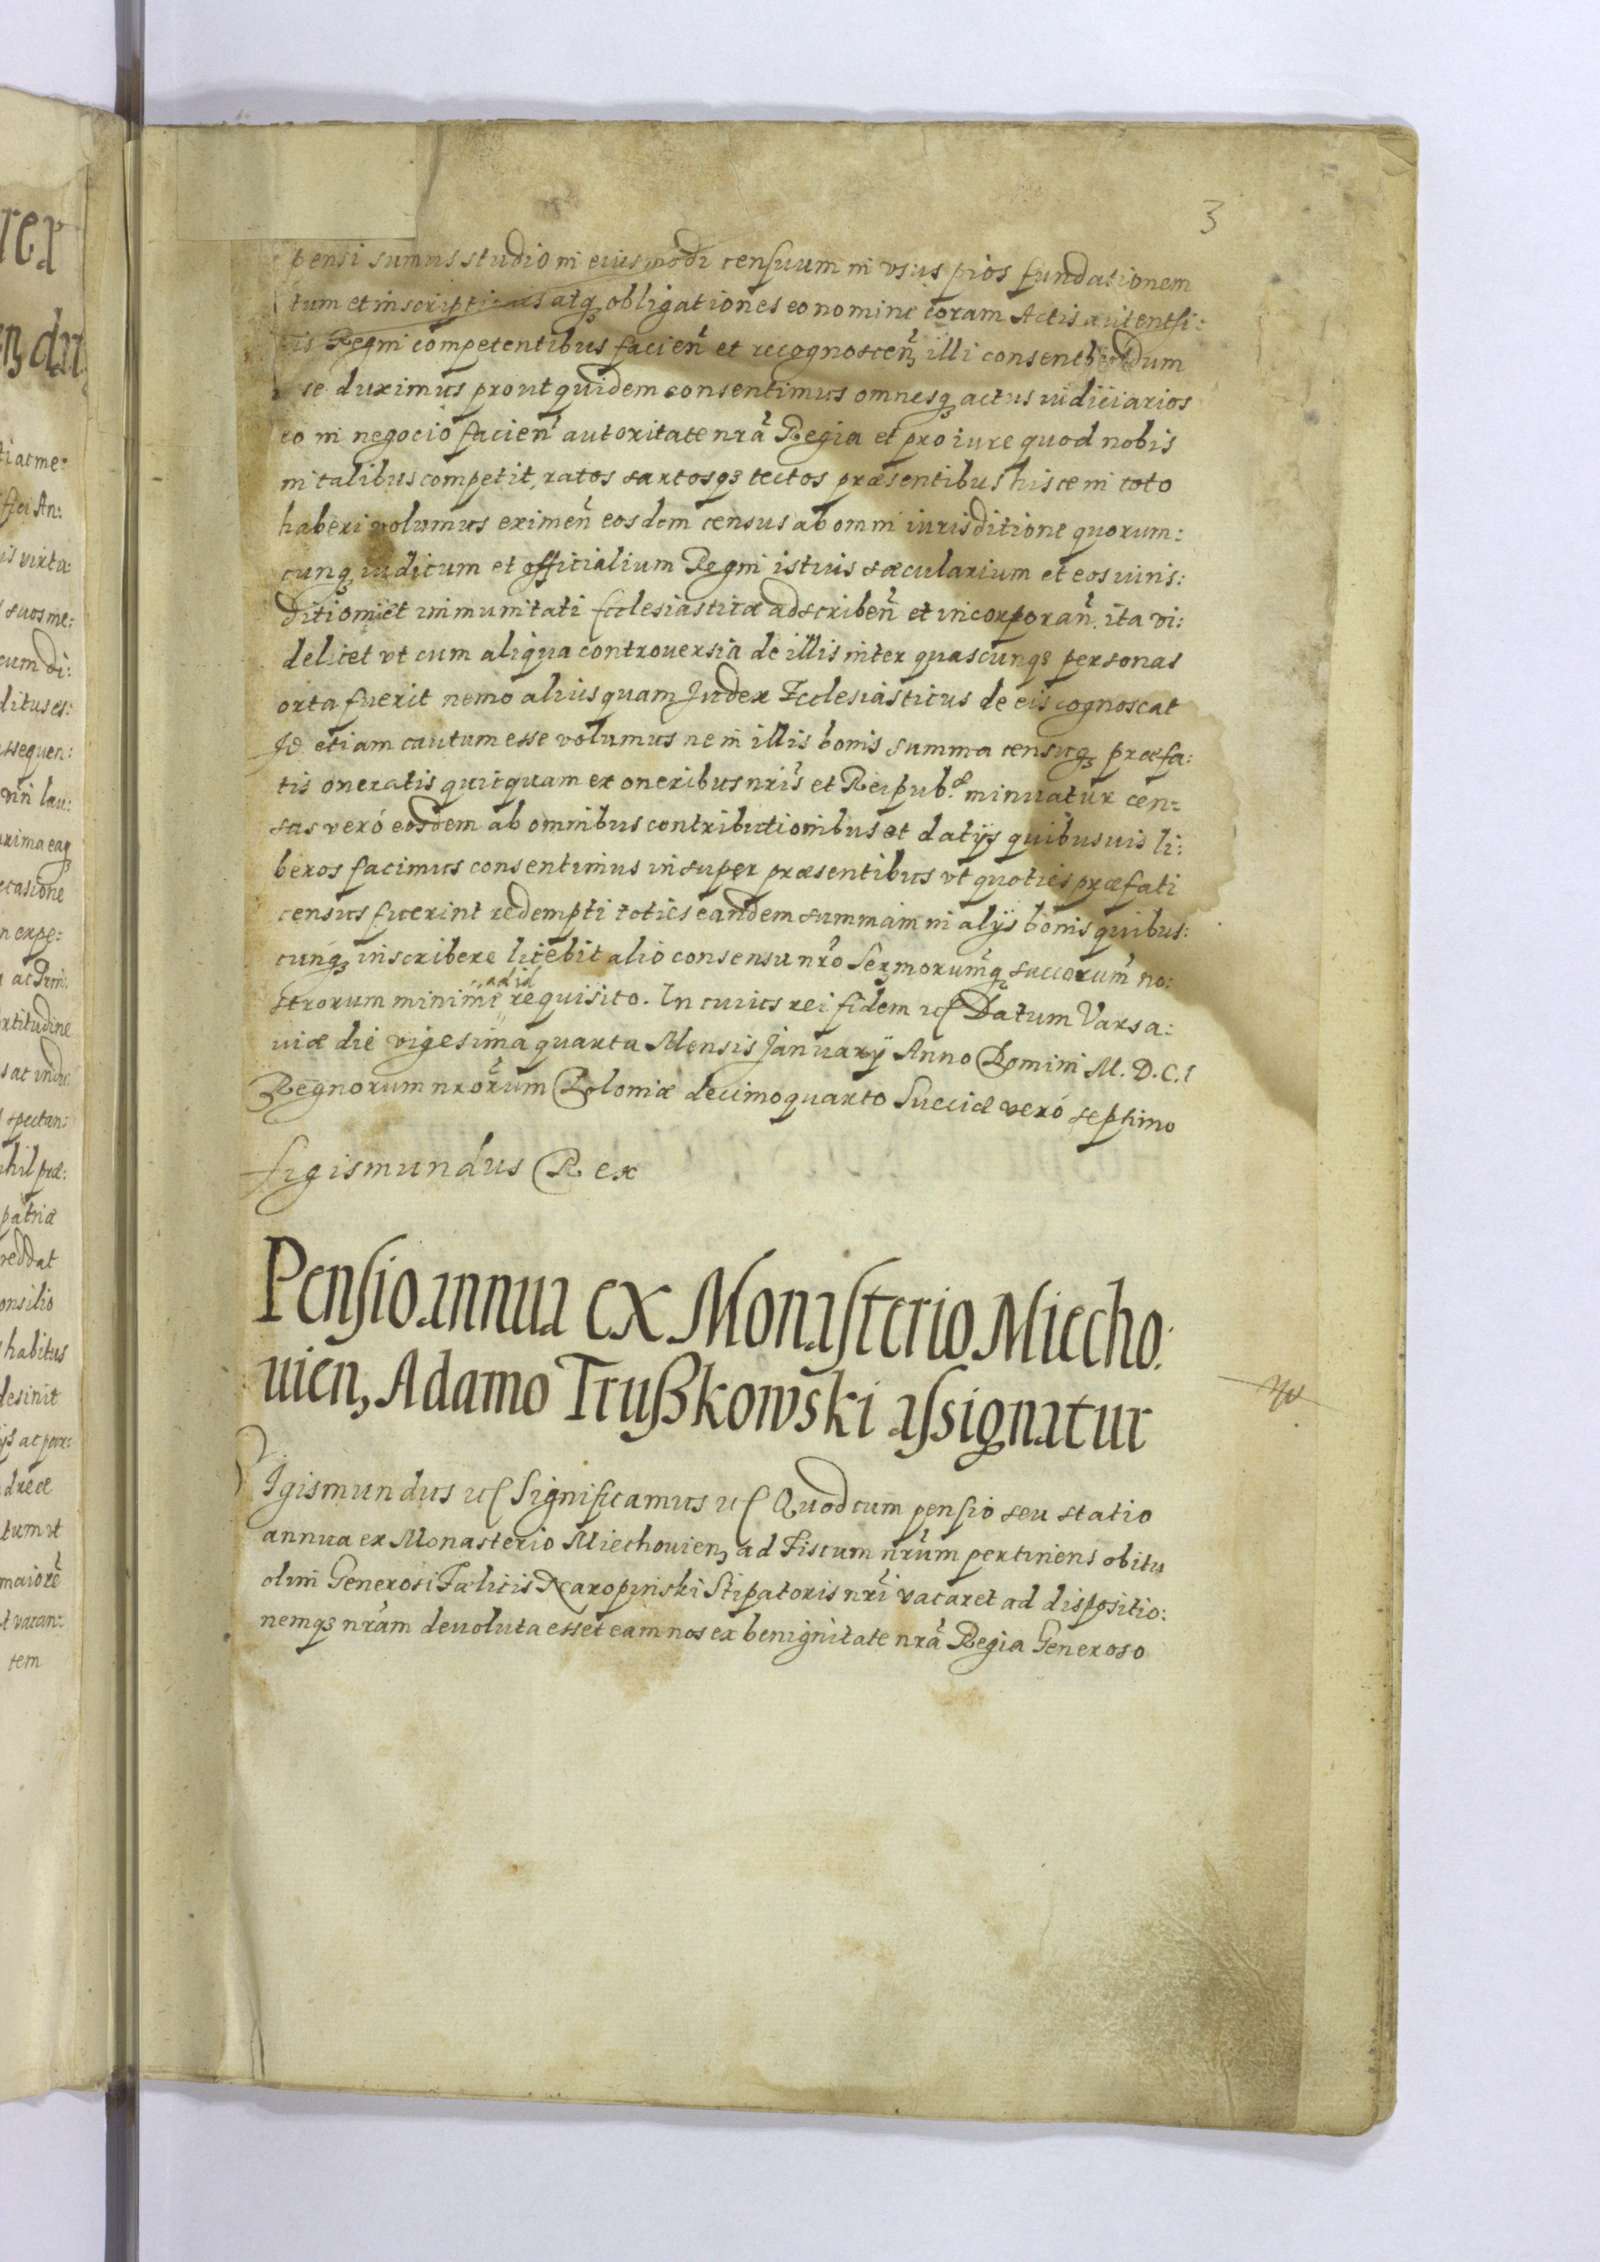 3
pensi sumus studio in eiusmodi censuum in vsus pios fundationem
tum et inscriptiones atq obligationes eo nomine coram Actis autentsi:
is Regni competentibus facien̄ et recognoscen̄ illi consentiendum
se duximus prout quidem consentimus omnesq actus iudiciarios
eo in negocio facien̄ autoritate nr̄a Regia et pro iure quod nobis
in talibus competit, ratos sartosqȝ tectos præsentibus hisce in toto
haberi volumus eximen̄ eosdem census ab omni iurisditione quorum:
cunqȝ iudicum et officialium Regni istius sæcularium et eos iuris:
ditioni et immunitati Ecclesiasticæ adscriben̄ et incorporan̄. ita vi:
delicet vt cum aliqua controuersia de illis inter quascunqȝ personas
orta fuerit nemo alius quam Iudex Ecclesiasticus de eis cognoscat
Id etiam cautum esse volumus ne in illis bonis summa censuqȝ præfa:
tis oneratis quicquam ex oneribus nr̄is et Reipub.æ minuatur cen:
sus veró eosdem ab omnibus contributionibus et datijs quibusuis li:
beros facimus consentimus insuper præsentibus vt quoties præfati
census fuerint redempti toties eandem summam in alijs bonis quibus:
cunqȝ inscribere licebit alio consensu nr̄o Sermorumqȝ saccorum no:
ad id
strorum minimè requisito. In cuius rei fidem ꝛc Datum Varsa:
uiæ die vigesima quarta Mensis Ianuarij Anno Domini M.D.C.I
Regnorum nrōrum Poloniæ decimoquarto Sueciæ veró septimo
Sigismundus Rex
Pensio annua ex Monasterio Miecho:
uien, Adamo Trußkowski assignatur
Sigismundus ꝛc Significamus ꝛc Quod cum pensio seu statio
annua ex Monasterio Miechouien, ad Fiscum nr̄um pertinens obitu
olim Generosi Fælicis Karopinski Stipatoris nr̄i vacaret ad dispositio:
nemqȝ nr̄am deuoluta esset eam nos ex benignitate nr̄a Regia Generoso